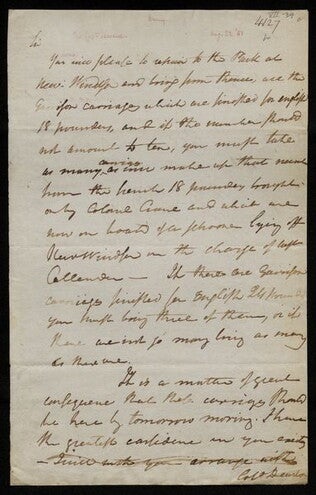 4427
Sir
You will please to repair to the Park at
New Windsor and bring from thence, all the
Garrison carriages which are finished for english
18 pounders, and if the number should
not amount to ten, you must take
as many as will make up that number
from the french 18 pounders brought
on by Colonel Crane and which are
now on board of a schooner lying off
New Windsor in the charge of Capt
Callender — If there are Garrison
carriages finished for English 24 pounders
you must bring three of them, or if
there are not so many bring as many
as there are.
It is a matter of great
consequence that these carriages should
be here by tomorrow morning. I have
the greatest confidence in your
I wish you
Colo